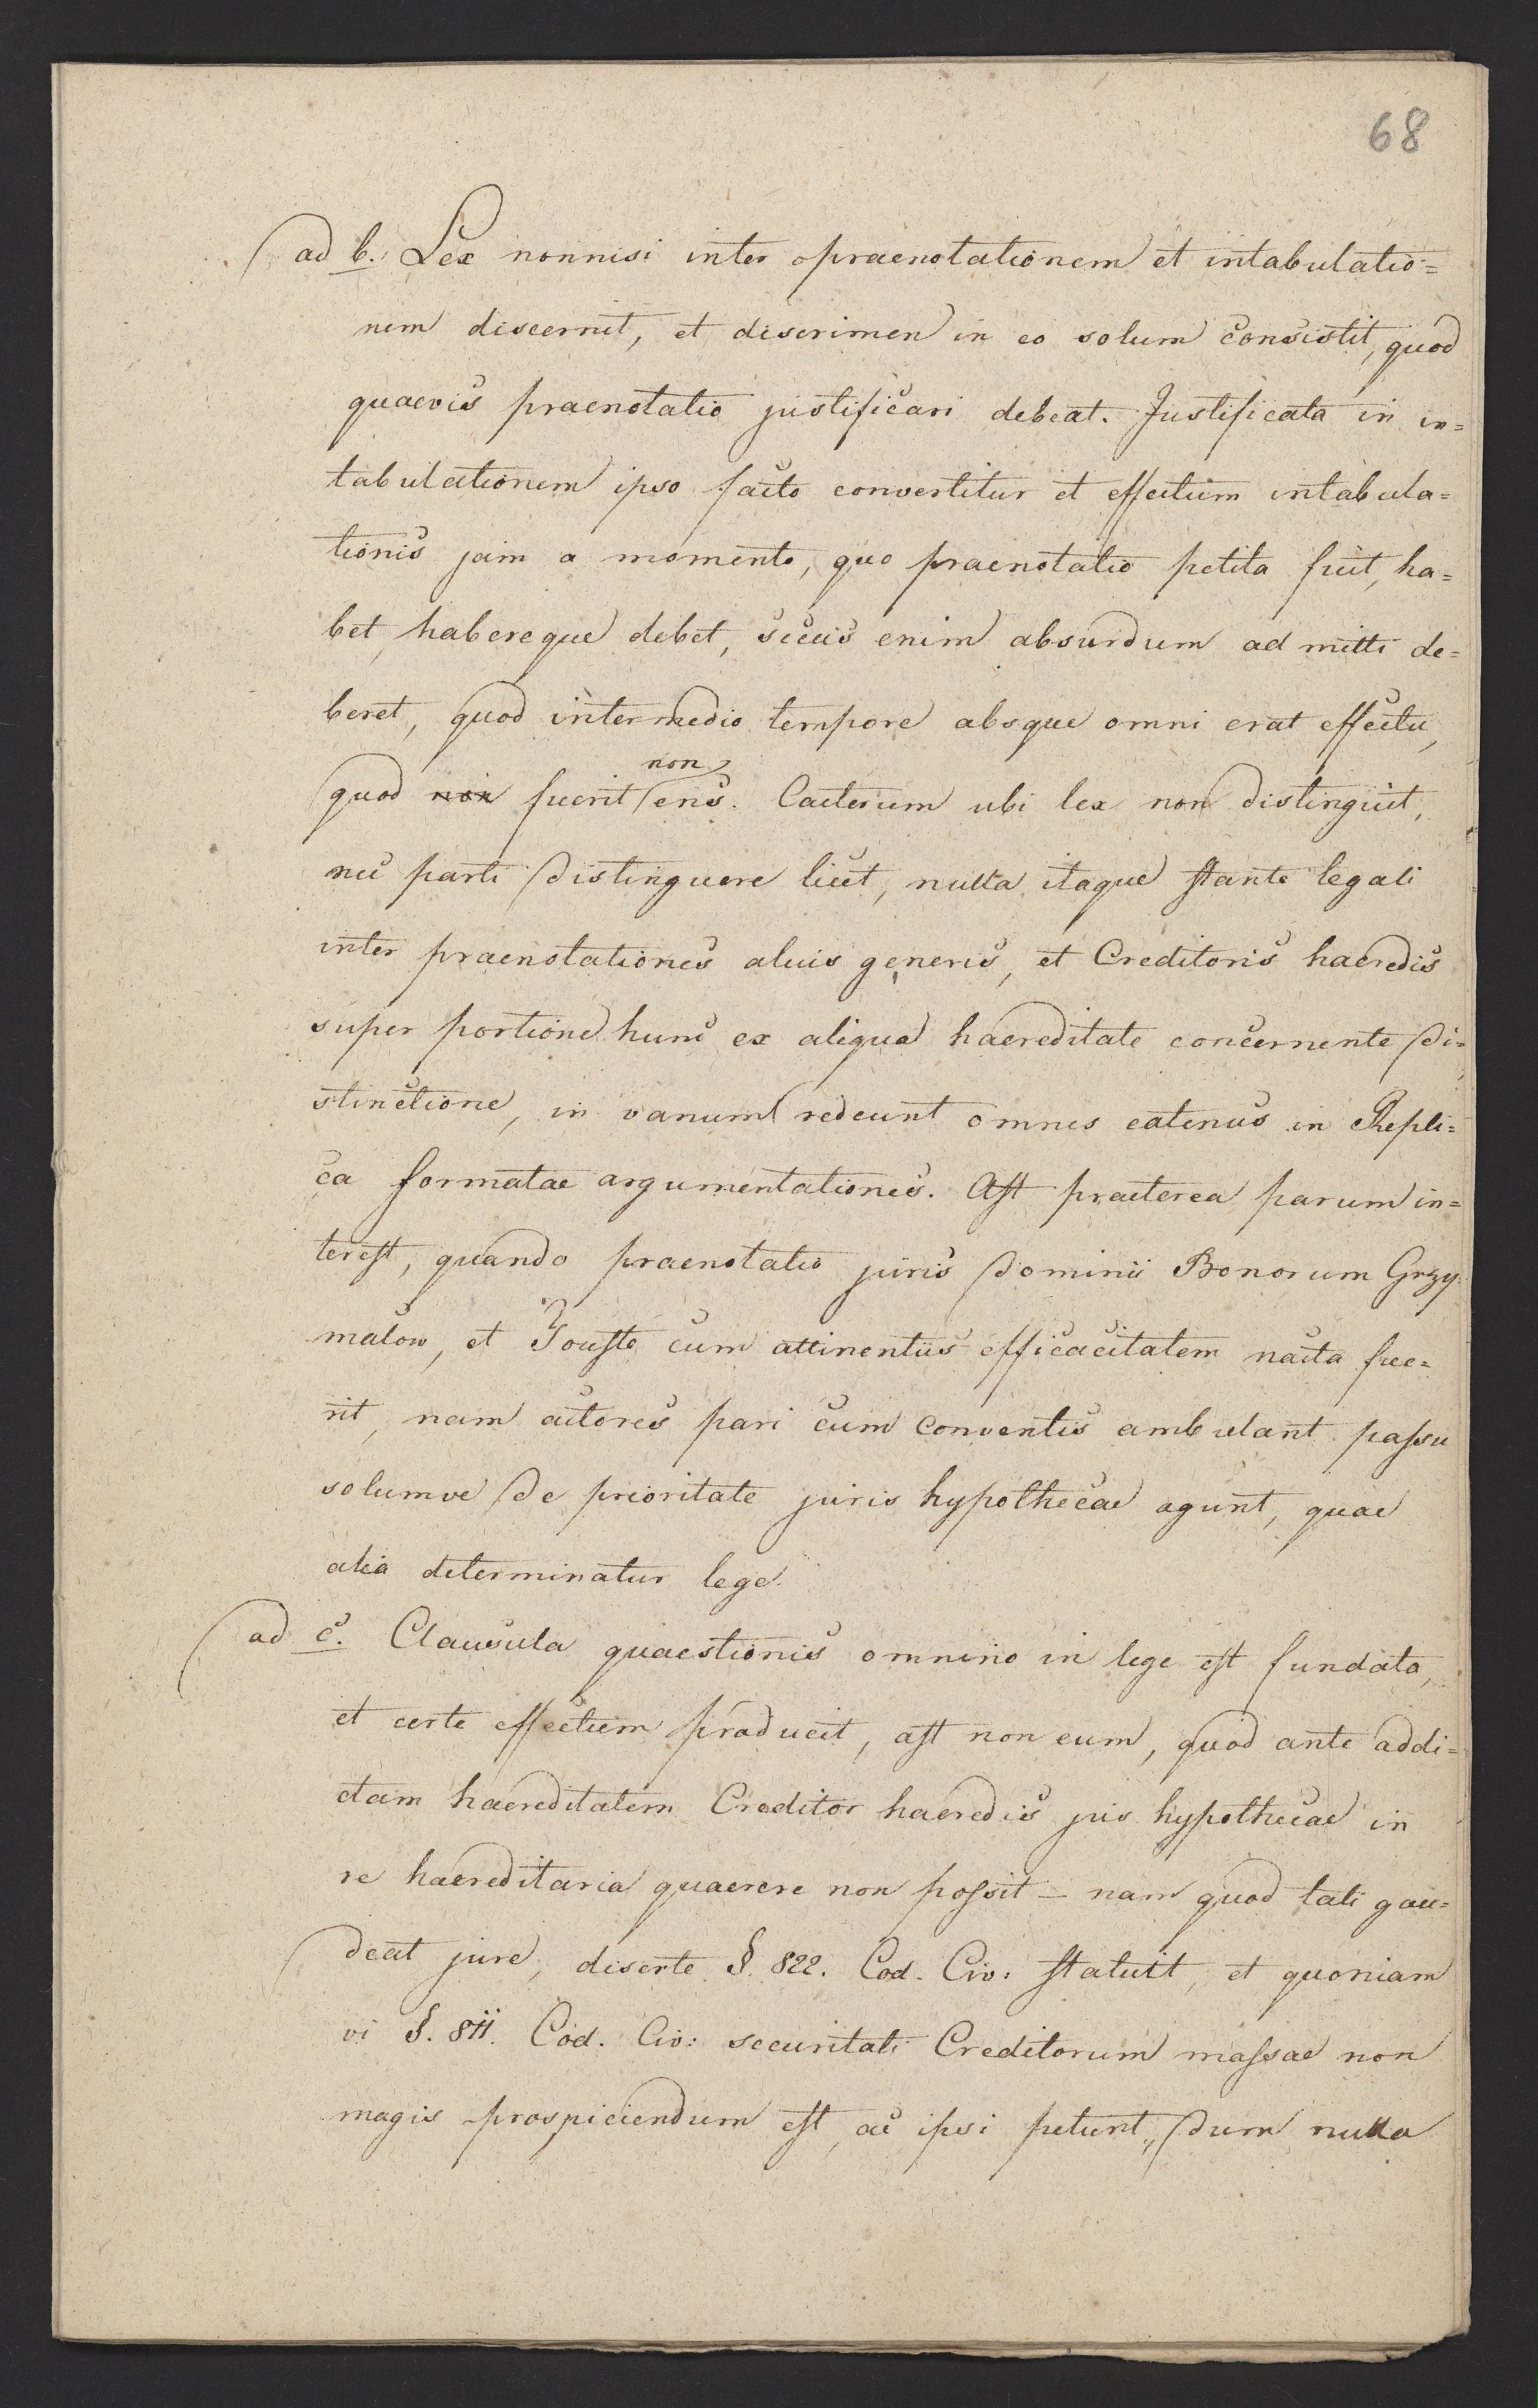 68
ad b. Lex nonnisi inter praenotationem et intabulatio=
nem discernit, et discrimen in eo solum consistit, quod
quaevis praenotatio justificari debeat. Justificata in in=
tabulationem ipso facto convertitur et effectum intabula=
tionis jam a momento, quo praenotatio petita fuit, ha=
bet, habereque debet, secus enim absurdum admitti de=
beret, quod intermedio tempore absque omni erat effectu,
quod non fuerit non ens. Caeterum ubi lex non distinguit,
nec parti distinguere licet, nulla itaque stante legali
inter praenotationes alius generis, et Creditoris haeredis
super portione hunc ex aliqua haereditate concernente di=
stinctione, in vanum redeunt omnes eatenus in Repli=
ca formatae argumentationes. Ast praeterea parum in=
terest, quando praenotatio juris dominii Bonorum Grzy=
malow, et Touste cum attinentiis efficacitatem nacta fue=
rit, nam actores pari cum conventis ambulant passu
solumve de prioritate juris hypothecae agunt, quae
alia determinatur lege.
ad c. Clausula quaestionis omnino in lege est fundata,
et certe effectum producit, ast non eum, quod ante addi=
ctam haereditatem Creditor haeredis jus hypothecae in
re haereditaria quaerere non possit – nam quod tali gau=
deat jure, diserte §. 822. Cod. Civ: statuit, et quoniam
vi §. 811. Cod. Civ: securitati Creditorum massae non
magis prospiciendum est, ac ipsi petunt, dum nulla